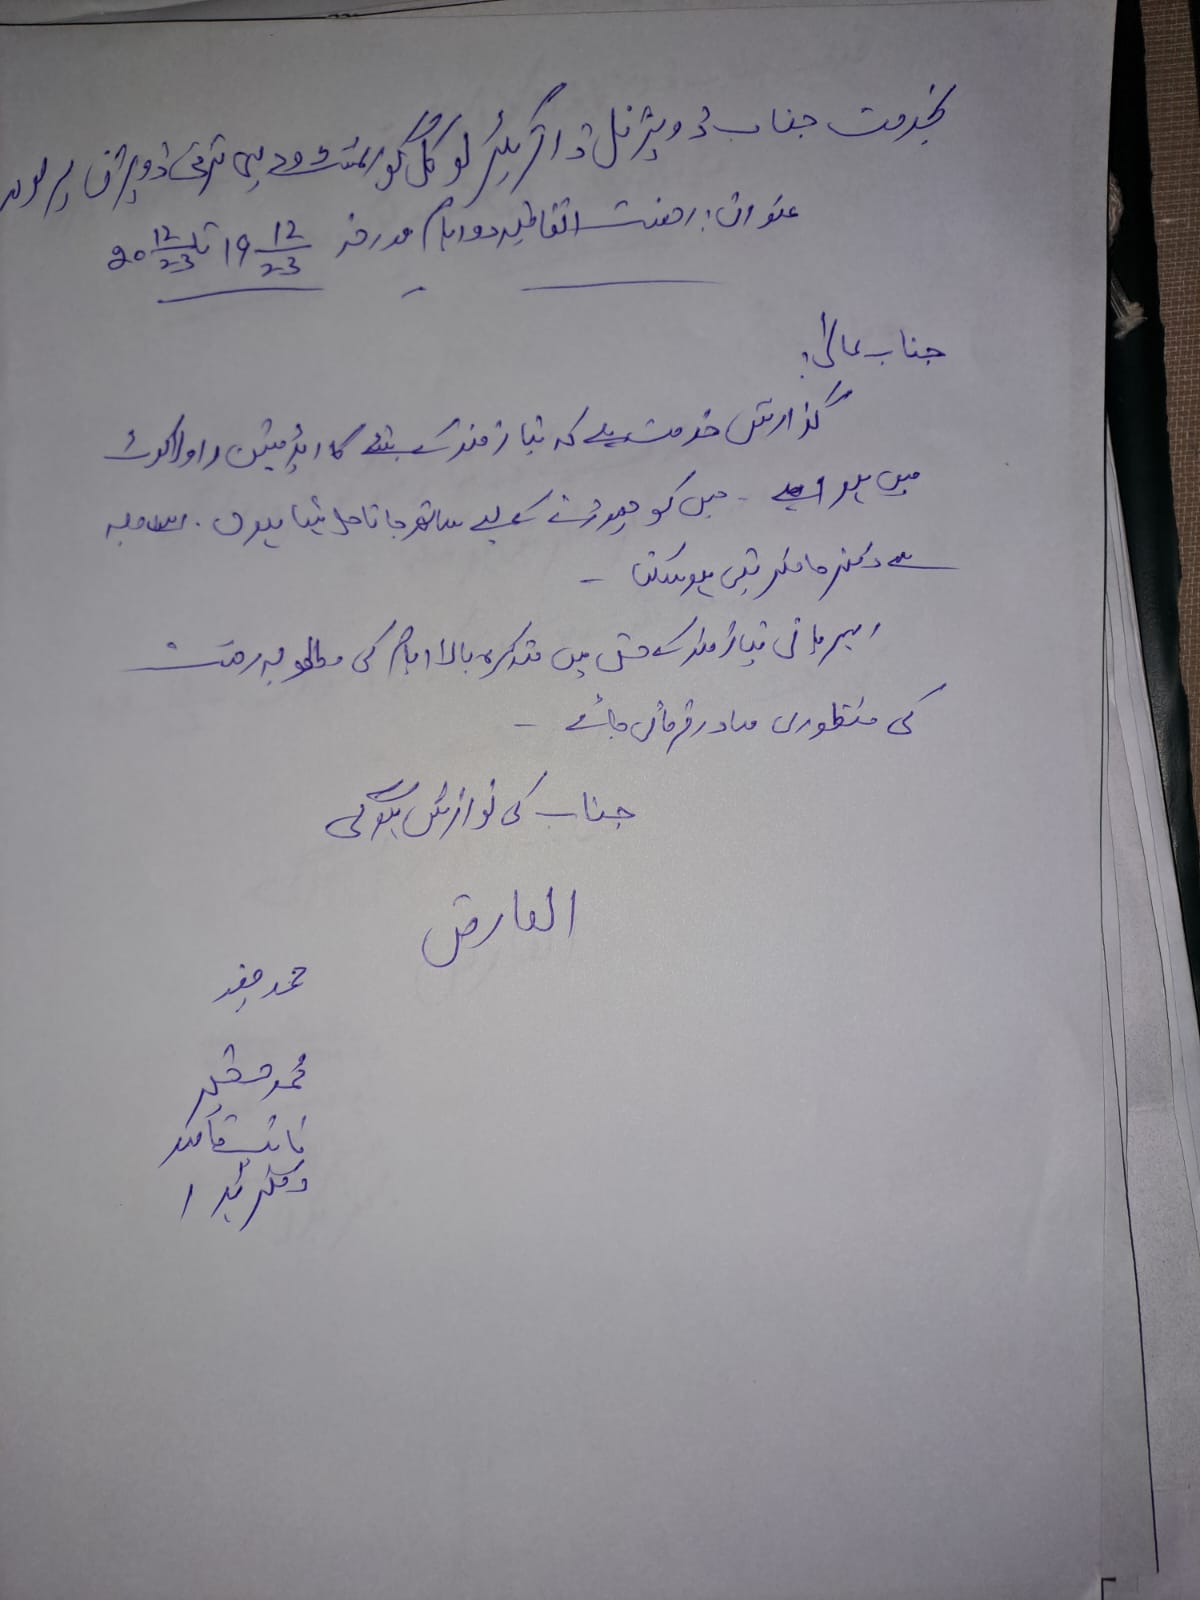 بخدمت جناب ڈویژنل ڈائریکٹر لوکل گورنمنٹ و دیہی ترقی ڈویژن
عنوان: رخصت اتفاقیہ دو ایام مورخہ 19 12/23 تا 20 12/23
جناب عالی!
گذارش خدمت ہے کہ نیاز مند کے بیٹے کا ایڈمیشن راولاکوٹ
میں ہوا ہے - جس کو چھوڑنے کے لیے ساتھ جانا چاہتا ہوں. اس وجہ
سے دفتر حاضر نہیں ہو سکتا -
مہربانی نیاز مند کے حق میں متذکرہ بالا ایام کی مطلوبہ رخصت
کی منظوری صادر فرمائی جائے -
جناب کی نوازش ہوگی
العارض
محمد
محمد
نائب قاصد
دفتر ہذا